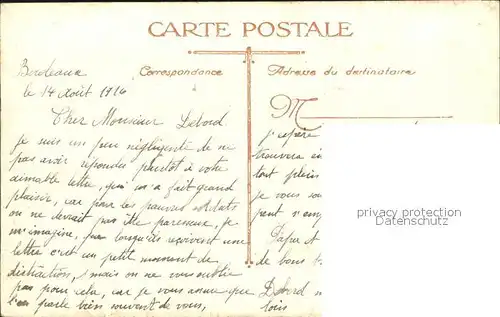 CARTE POSTALE
Correspondance
Adresse du destinataire
M
Bordeaux
le 14 août 1916
Cher Monsieur Debord
je suis un peu négligente de ne
pas avoir répondu plustôt à votre
aimable lettre, qui m'a fait grand
plaisir, car pour les pauvres soldats
on ne devrait pas être paresseux, je
m'imagine, que lorsqu'ils reçoivent une
lettre c'est un petit moment de
distractions, mais on ne vous oublie
pas pour cela, car je vous assure que
l'on parle bien souvent de vous,
j'espère
trouvera
tout plein
je vous so
peut s'em
de bons
Debord
lois
privacy protection
Datenschutz